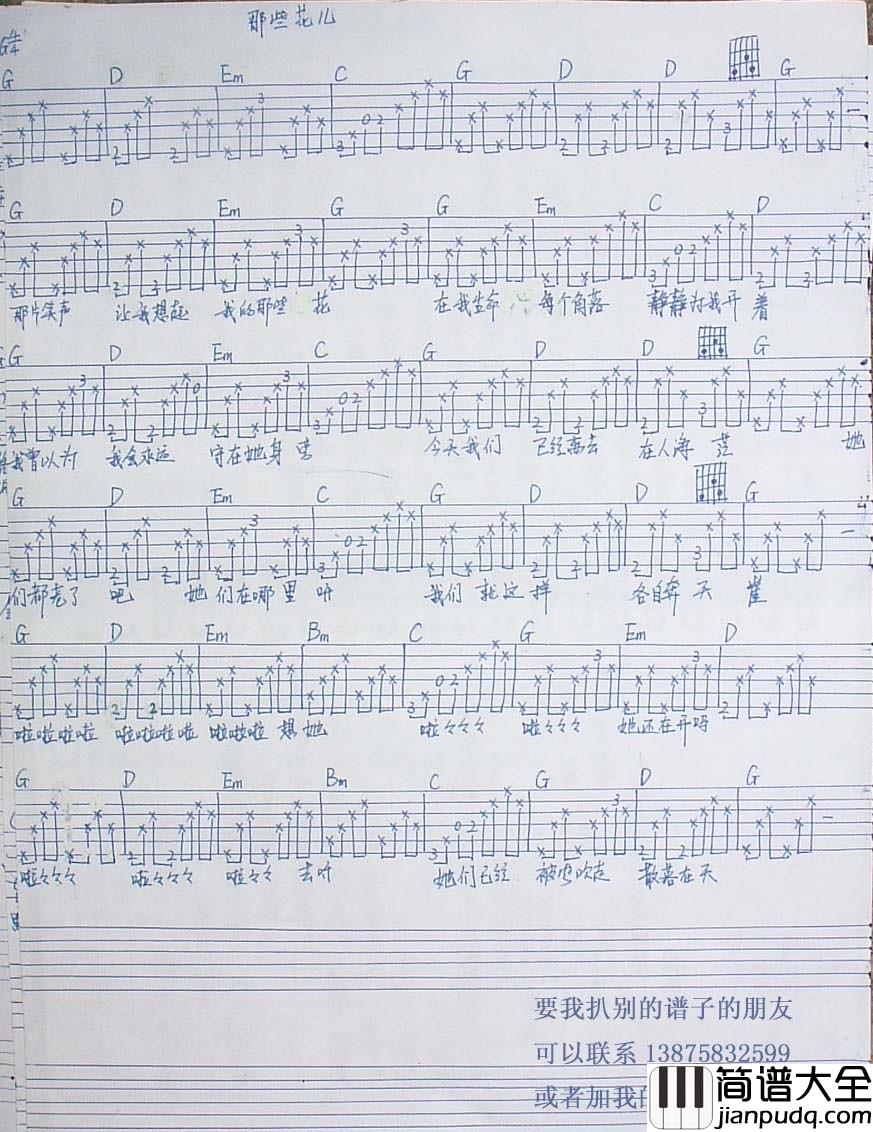 那些花儿
G 4/4
G D Em C G D D G
G D Em G G Em C D
那片笑声 让我想起 我的那些 花 在我生命 每个角落 静静为我开 着
G D Em C G D D G
我曾以为 我会永远 守在她身 旁 今天我们 已经离去 在人海 茫 她
G D Em C G D D G
们都老了 吧 她们在哪里 呀 我们就这样 各自奔 天 崖
G D Em Bm C G Em D
啦啦啦啦 啦啦啦啦 啦啦啦 想她 啦々々々 啦々々々 她还在开吗
G D Em Bm C G D G
啦々々々 啦々々々 啦々々 去呀 她们已经 被风吹走 散落在天
要我扒别的谱子的朋友
可以联系 13875832599
或者加我的
简谱大全
jianpudq.com